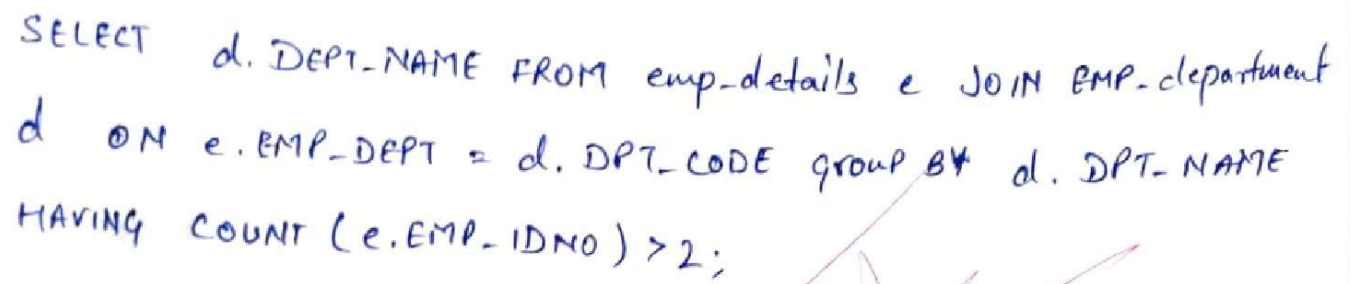 SELECT d. DEPT_NAME FROM emp_details e JOIN EMP_department
d ON e. EMP_DEPT = d. DPT_CODE group BY d. DPT_NAME
HAVING COUNT (e. EMP_IDNO) > 2;